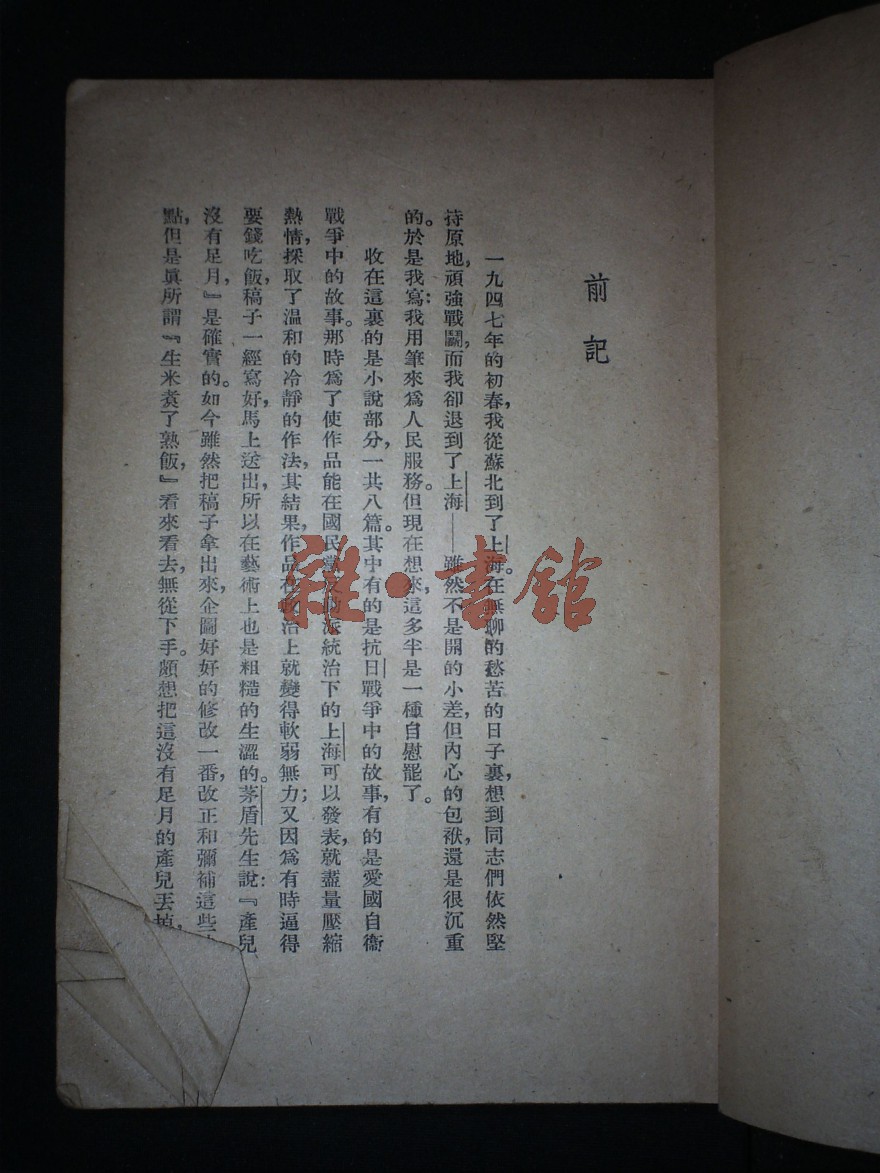 前記
一九四七年的初春，我從蘇北到了上海。在無聊的愁苦的日子裏，想到同志們依然堅
持原地，頑強戰鬭，而我卻退到了上海——雖然不是開的小差，但內心的包袱，還是很沉重
的。於是我寫：我用筆來爲人民服務。但現在想來，這多半是一種自慰罷了。
收在這裏的是小說部分，一共八篇。其中有的是抗日戰爭中的故事，有的是愛國自衞
戰爭中的故事。那時爲了使作品能在國民黨反動派統治下的上海可以發表，就盡量壓縮
熱情，採取了溫和的冷靜的作法，其結果，作品在政治上就變得軟弱無力；又因爲有時逼得
要錢吃飯，稿子一經寫好，馬上送出，所以在藝術上也是粗糙的生澀的。茅盾先生說：『產兒
沒有足月，』是確實的。如今雖然把稿子拿出來，企圖好好的修改一番，改正和彌補這些
點，但是眞所謂『生米煑了熟飯，』看來看去，無從下手。頗想把這沒有足月的產兒丟掉，
雜·書館